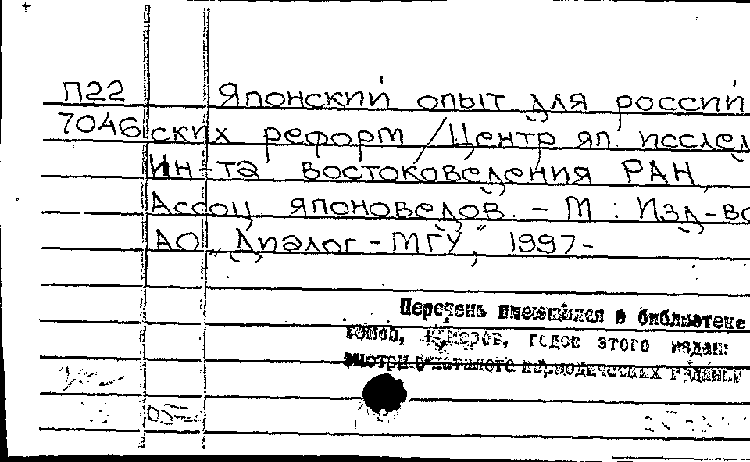 П22 Японский опыт для россий
7046 ских реформ / Центр яп. исслед
Ин-та востоковедения РАН,
Ассоц японоведов. - М : Изд-во
АО „Диалог - МГУ", 1997-
Перечень имеющихся в библиотеке
томов, номеров, годов этого издан
смотри в каталоге периодических изданий
05